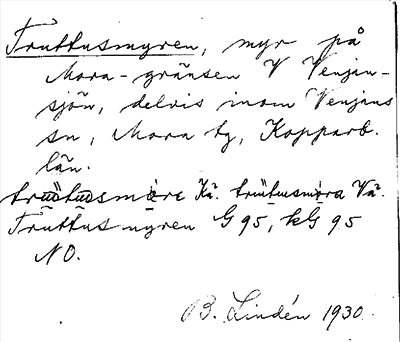 Truttusmyren, myr på
Mora-gränsen V Venjan-
sjön, delvis inom Venjans
sn, Mora tg, Kopparb.
län.
trüt̄tusmȯre Kä. trüt̄tusmȯra Vä.
Truttus myren G 95, kG 95
NO.
B. Lindén 1930.